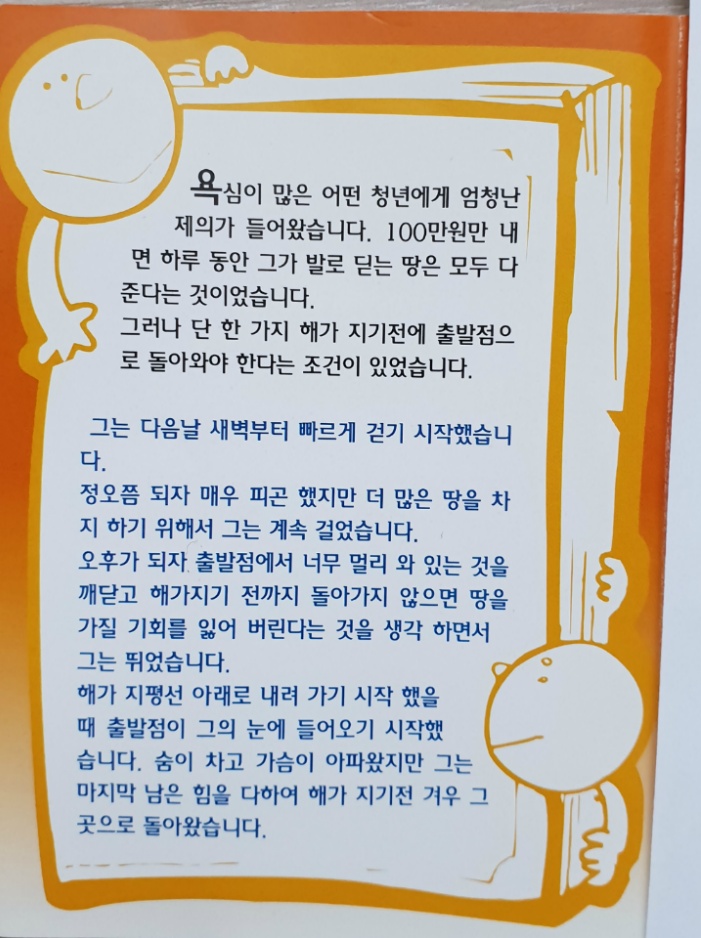 욕심이 많은 어떤 청년에게 엄청난
제의가 들어왔습니다. 100만원만 내
면 하루 동안 그가 발로 딛는 땅은 모두 다
준다는 것이었습니다.
그러나 단 한 가지 해가 지기전에 출발점으
로 돌아와야 한다는 조건이 있었습니다.
그는 다음날 새벽부터 빠르게 걷기 시작했습니
다.
정오쯤 되자 매우 피곤 했지만 더 많은 땅을 차
지 하기 위해서 그는 계속 걸었습니다.
오후가 되자 출발점에서 너무 멀리 와 있는 것을
깨닫고 해가지기 전까지 돌아가지 않으면 땅을
가질 기회를 잃어 버린다는 것을 생각 하면서
그는 뛰었습니다.
해가 지평선 아래로 내려 가기 시작 했을
때 출발점이 그의 눈에 들어오기 시작했
습니다. 숨이 차고 가슴이 아파왔지만 그는
마지막 남은 힘을 다하여 해가 지기전 겨우 그
곳으로 돌아왔습니다.